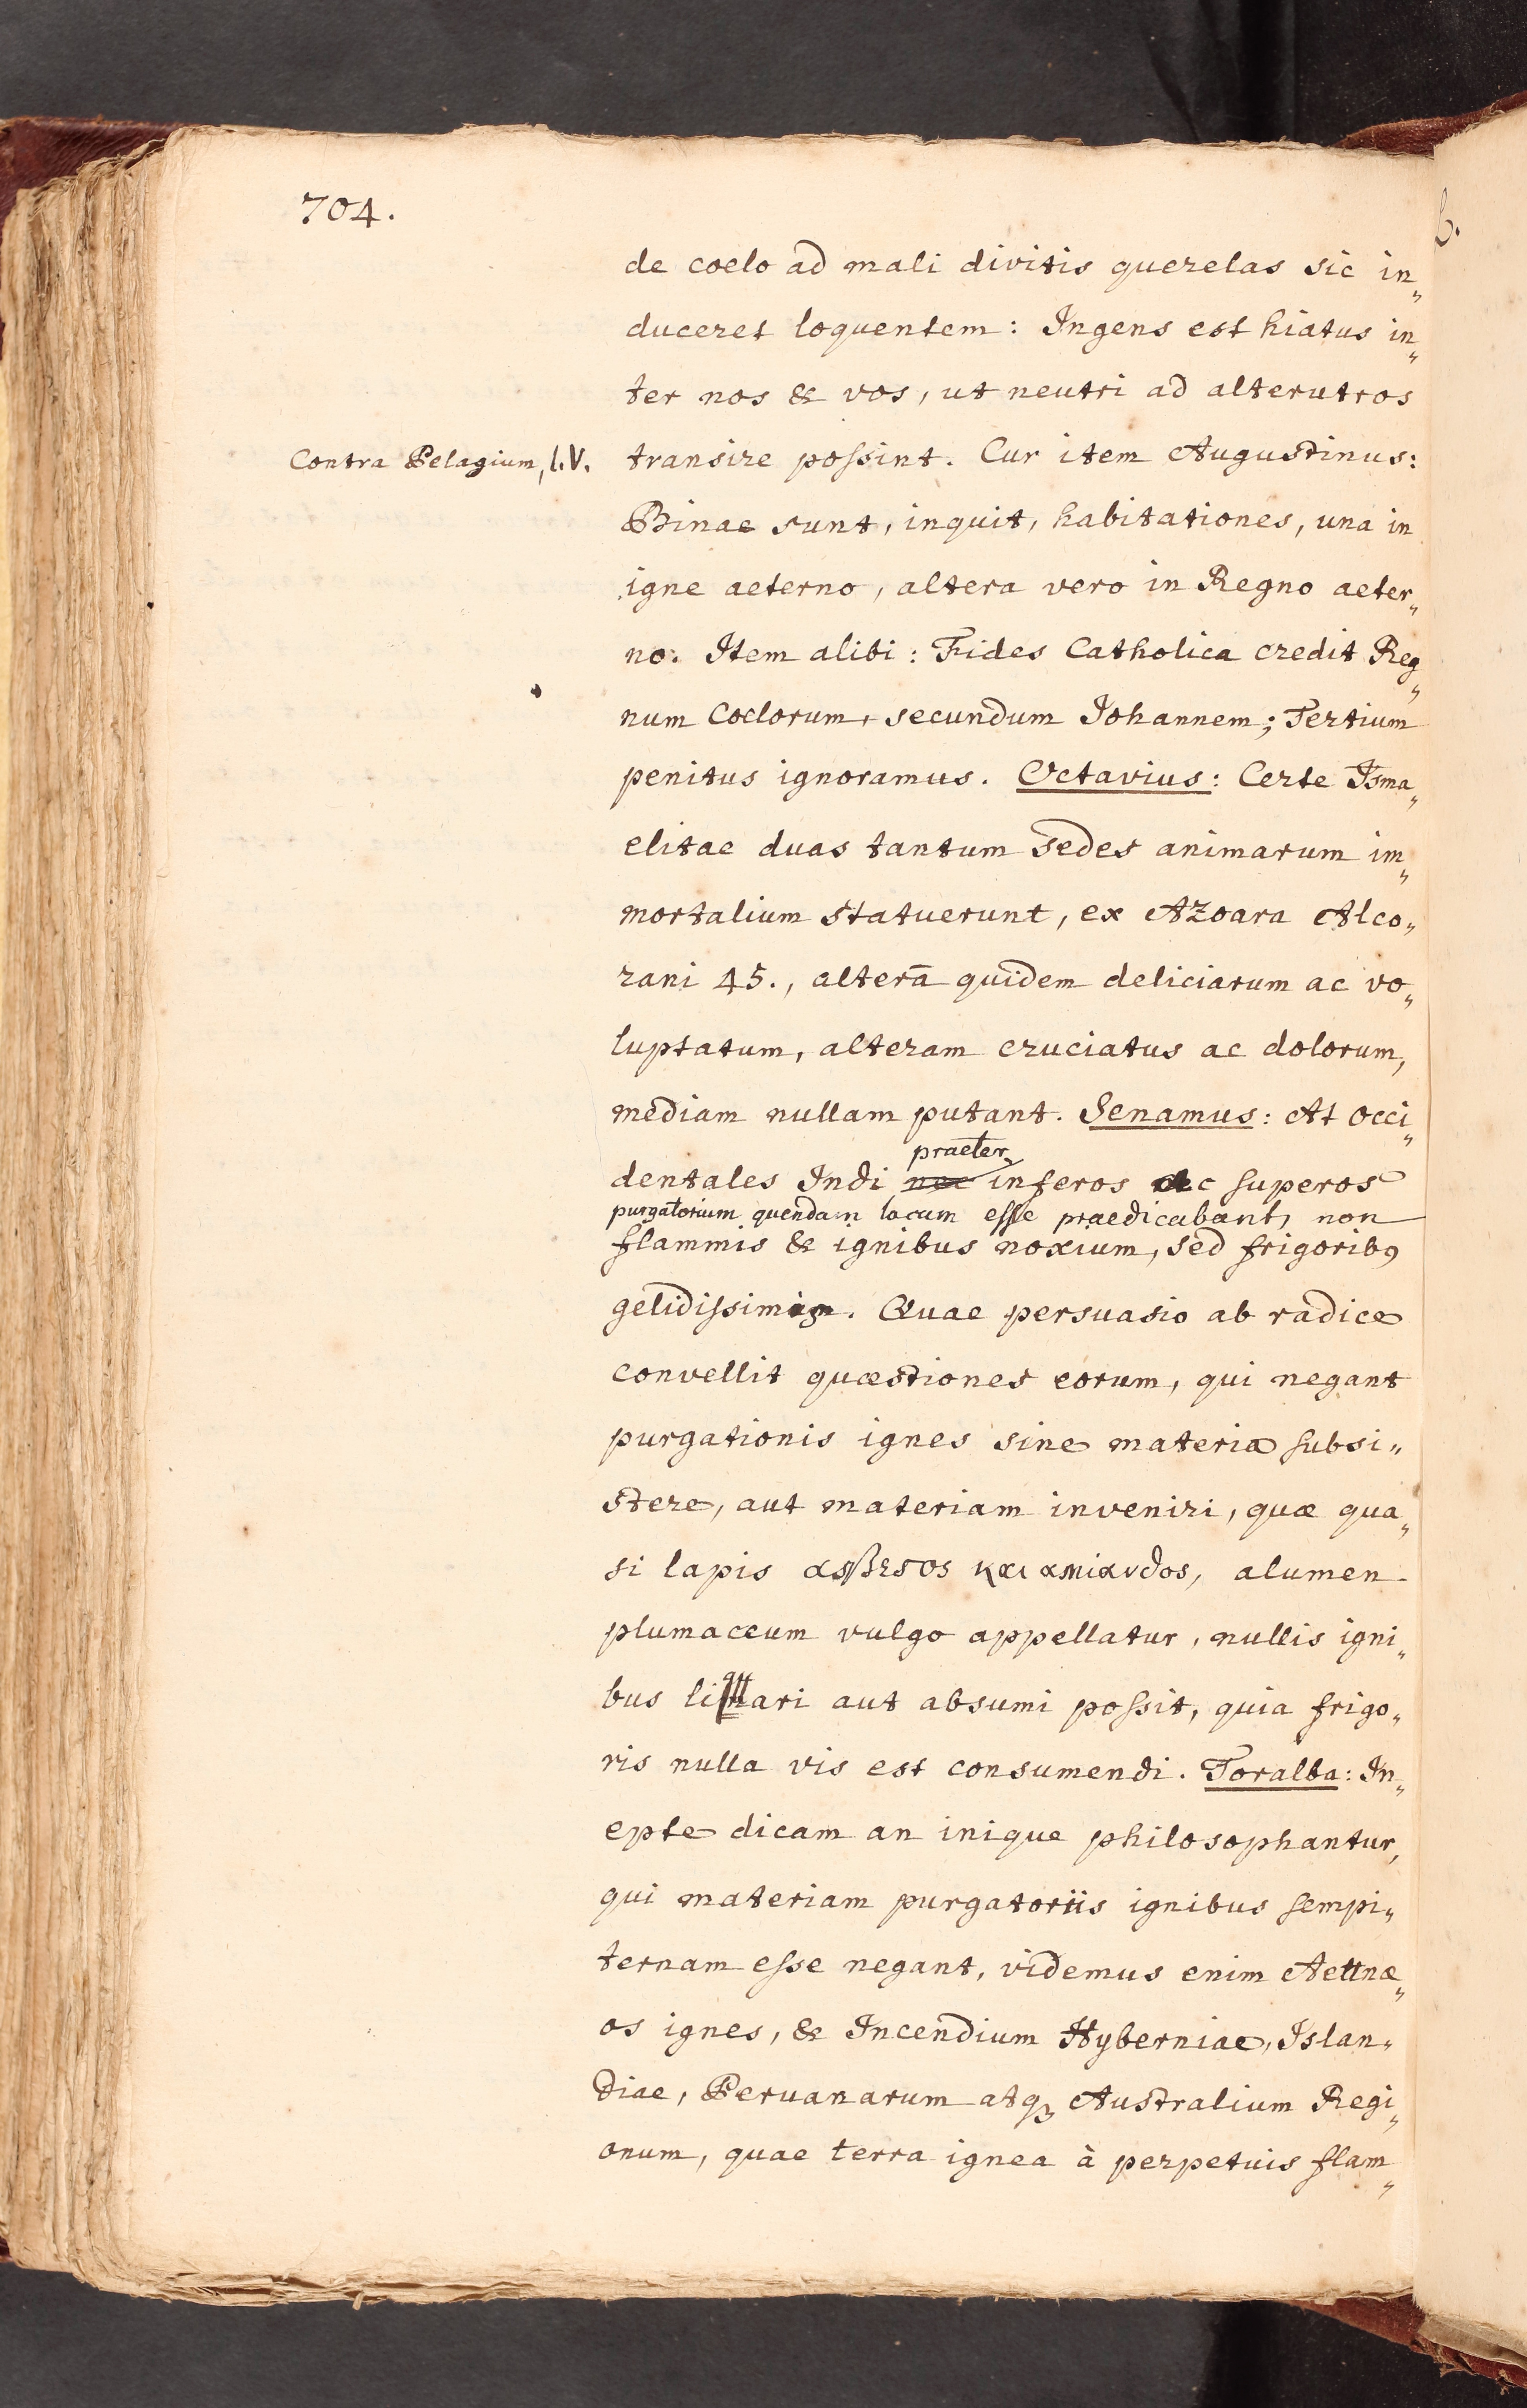 704.
de coelo ad mali divitis querelas sic in„
duceret loquentem: Ingens est hiatus in„
ter nos & vos, ut neutri ad alterutros
Contra Pelagium, l. V.
transire possint. Cur item Augustinus:
Binae sunt, inquit, habitationes, una in
igne aeterno, altera vero in Regno aeter„
no. Item alibi: Fides Catholica credit Reg„
num Coelorum, secundum Johannem; Tertium
penitus ignoramus. Octavius: Certe Isma„
elitae duas tantum sedes animarum im„
mortalium statuerunt, ex Azoara Alco„
rani 45., alterā quidem deliciarum ac vo„
luptatum, alteram cruciatus ac dolorum,
mediam nullam putant. Senamus: At Occi„
praeter
dentales Indi nec inferos ac superos
purgatorium quendam locum esse praedicabant, non
flammis & ignibus noxium, sed frigoribꝰ
. Quae persuasio ab radice
convellit quæstiones eorum, qui negant
purgationis ignes sine materia subsi„
stere, aut materiam inveniri, quæ qua„
si lapis ασβεσος και αμιανδος, alumen
plumaceum vulgo appellatur, nullis igni„
bus aut absumi possit, quia frigo„
ris nulla vis est consumendi. Toralba: In„
epte dicam an inique philosophantur,
qui materiam purgatoriis ignibus sempi„
ternam esse negant, videmus enim Aettnæ„
os ignes, & Incendium Hyberniae, Islan„
diae, Peruanarum atqꝫ Australium Regi„
onum, quae terra ignea à perpetuis flam„